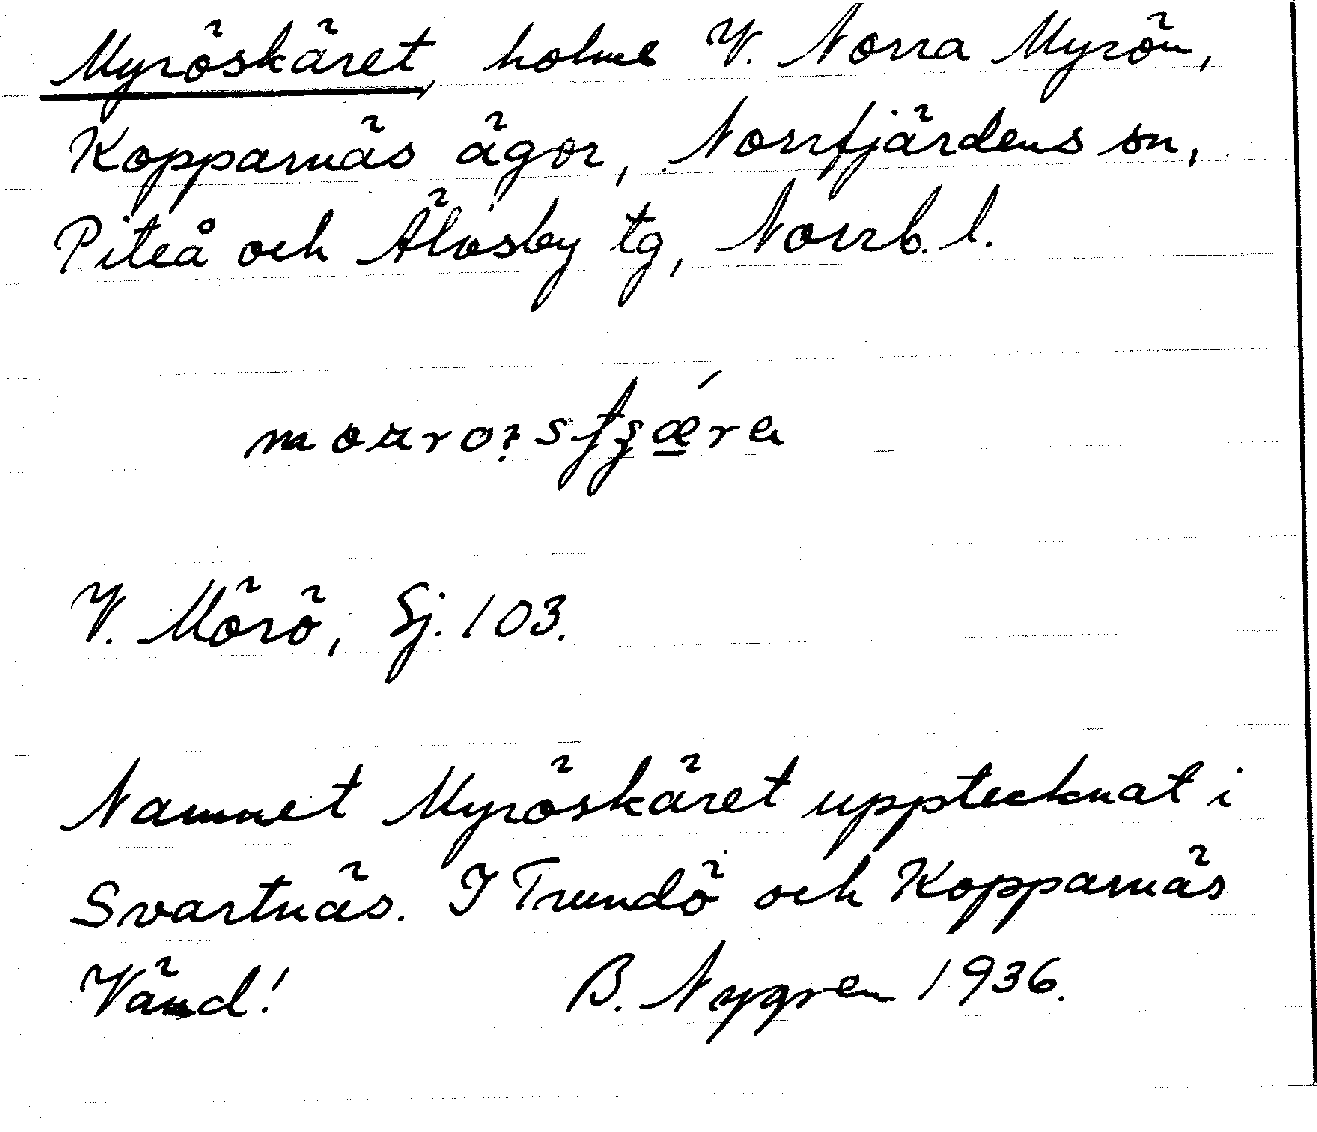 Myröskäret, holme V. Norra Myrön,
Kopparnäs ägor, Norrfjärdens sn,
Piteå och Älvsby tg, Norrb. l.
V. Mörö, Sj. 103.
Namnet Myröskäret upptecknat i
Svartnäs. I Trundö och Kopparnäs
Vänd! B. Nygren 1936.